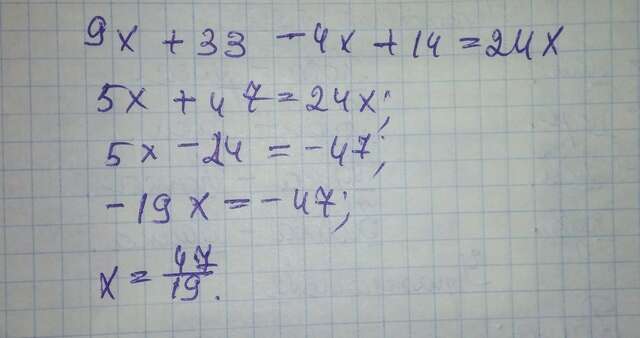 9x + 33 - 4x + 14 = 24x
5x + 47 = 24x;
5x - 24 = -47;
-19x = -47;
x = 47/19.